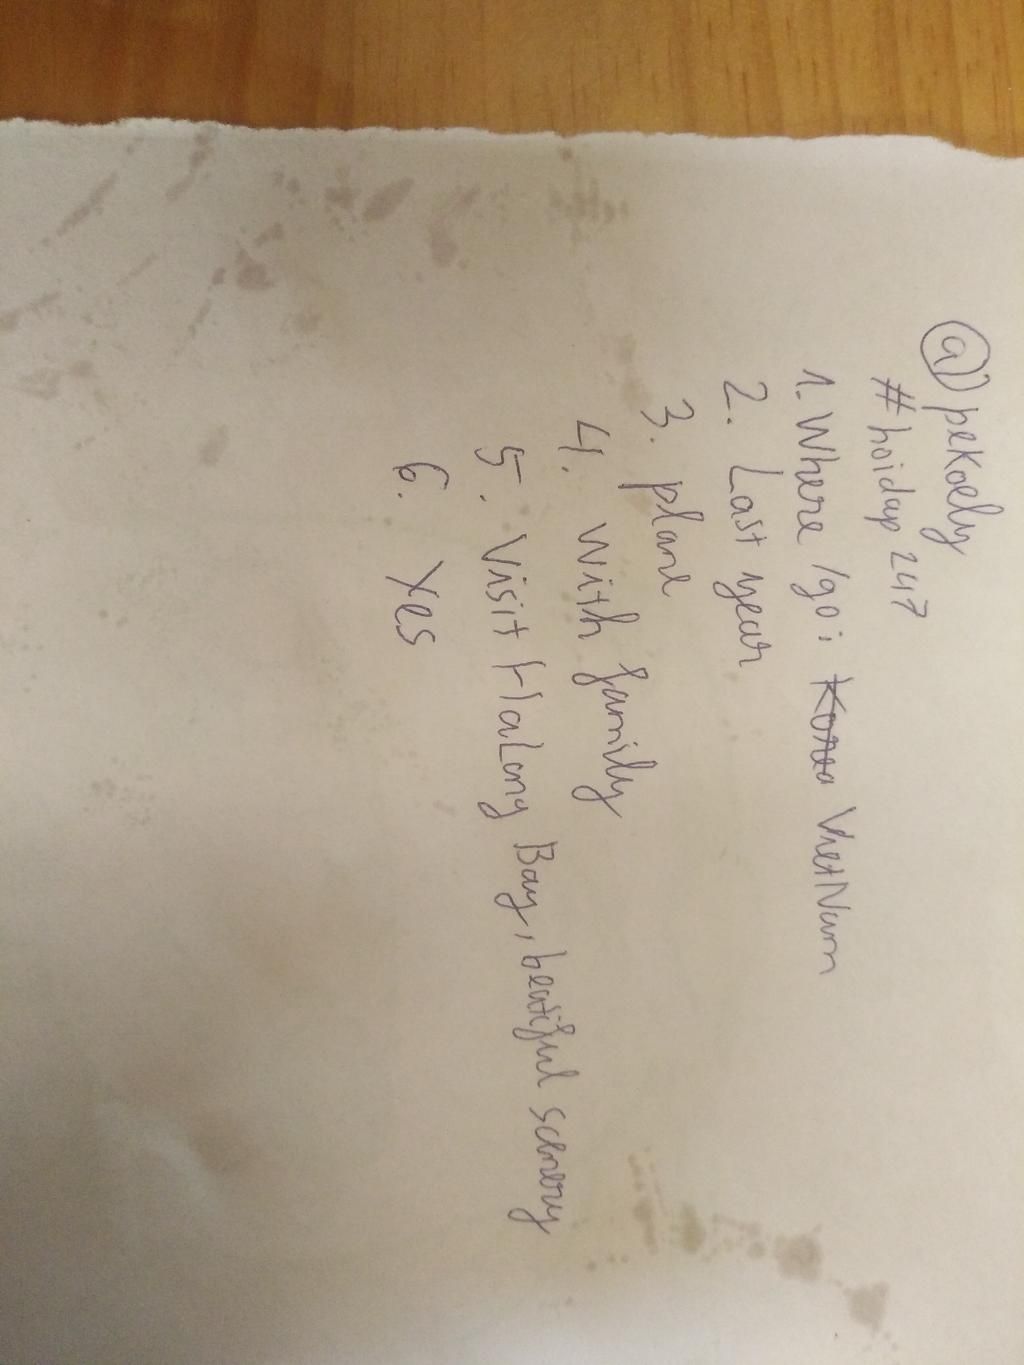 @pekoely
#hoidap247
1. Where /go: Korea VietNam
2. Last year
3. plane
4. With family
5. Visit HaLong Bay, beatiful scenery
6. Yes